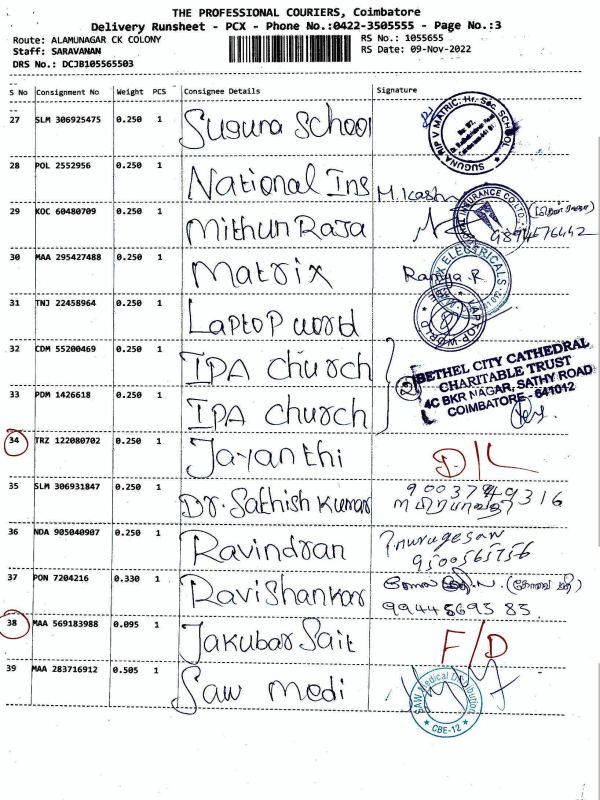 THE PROFESSIONAL COURIERS, Coimbatore
Delivery Runsheet - PCX - Phone No.:0422-3505555 - Page No.:3
Route: ALAMUNAGAR CK COLONY RS No.: 1055655
Staff: SARAVANAN RS Date: 09-Nov-2022
DRS No.: DCJB105565503
S No Consignment No Weight PCS Consignee Details Signature
27 SLM 306925475 0.250 1 Suguna School SUGUNA RIP V MATRIC. Hr. Sec. SCHOOL
28 POL 2552956 0.250 1 National Ins M.Kash
29 KOC 60480709 0.250 1 Mithun Raja INSURANCE CO.LTD.
30 MAA 295427488 0.250 1 Matrix Ramya.R ELECTRICALS
31 TNJ 22458964 0.250 1 Laptop world LAPTOP WORLD
32 CDM 55200469 0.250 1 IPA Church BETHEL CITY CATHEDRAL
CHARITABLE TRUST
33 PDM 1426618 0.250 1 IPA Church 4C BKR NAGAR, SATHY ROAD
COIMBATORE - 641012
34 TRZ 122080702 0.250 1 Jayanthi D/L
35 SLM 306931847 0.250 1 Dr. Sathish Kumar
36 NDA 905040907 0.250 1 Ravindran murugesan
9500565756
37 PON 7204216 0.330 1 Ravishankar
99445695 85
38 MAA 569183988 0.095 1 Jakubar Sait F/D
39 MAA 283716912 0.505 1 Saw medi SAW Medical Distribution
CBE-12